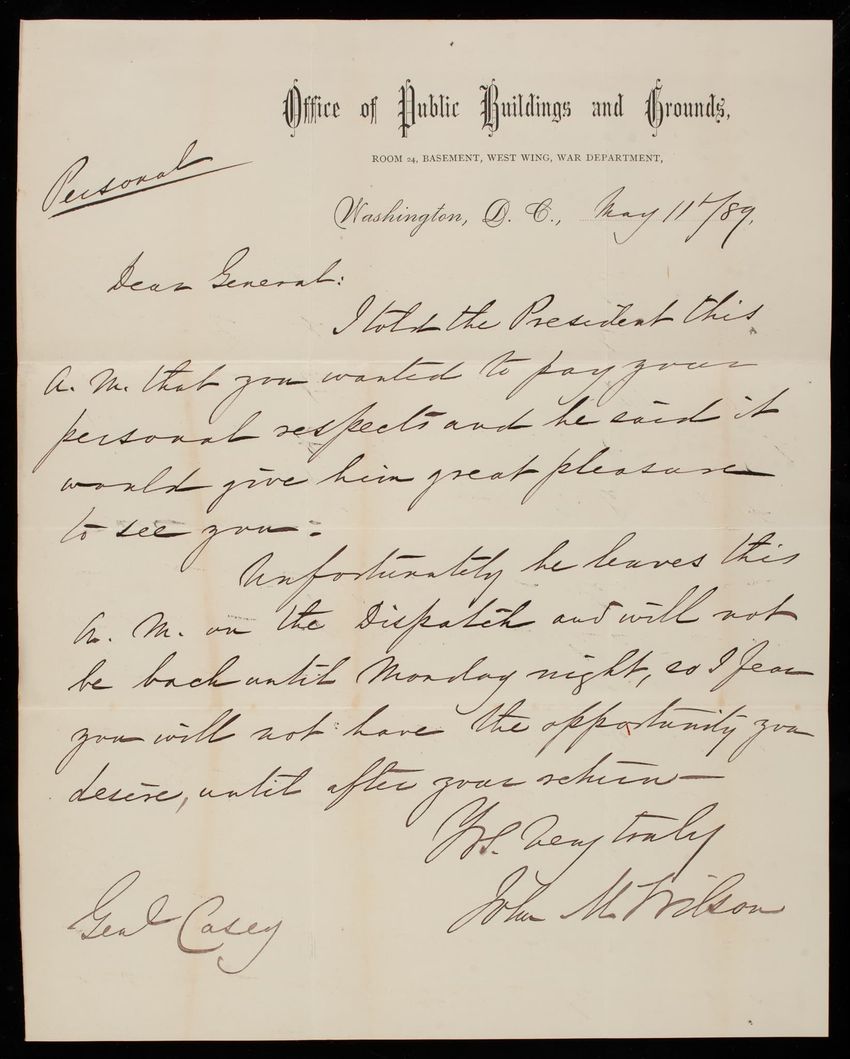 Office of Public Buildings and Grounds,
ROOM 24, BASEMENT, WEST WING, WAR DEPARTMENT,
Personal
Washington, D. C., May 11th/89.
Dear General:
I told the President this
A. M. that you wanted to pay your
personal respects and he said it
would give him great pleasure
to see you.
Unfortunately he leaves this
A. M. on the Dispatch and will not
be back until Monday night, so I fear
you will not have the opportunity you
desire, until after your return—
Yrs. Very truly
John M Wilson
Genl Casey